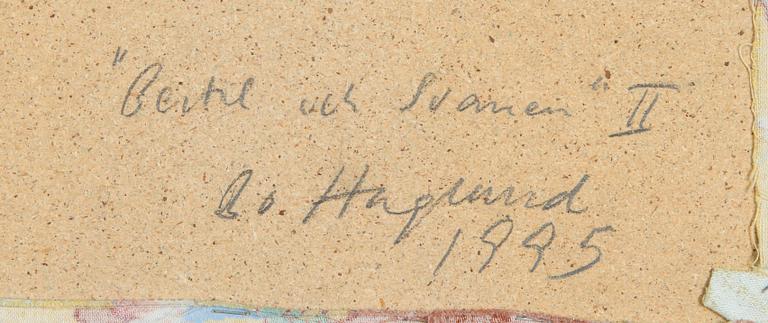 "Bertil och Svanen" II
Bo Haglund
1995